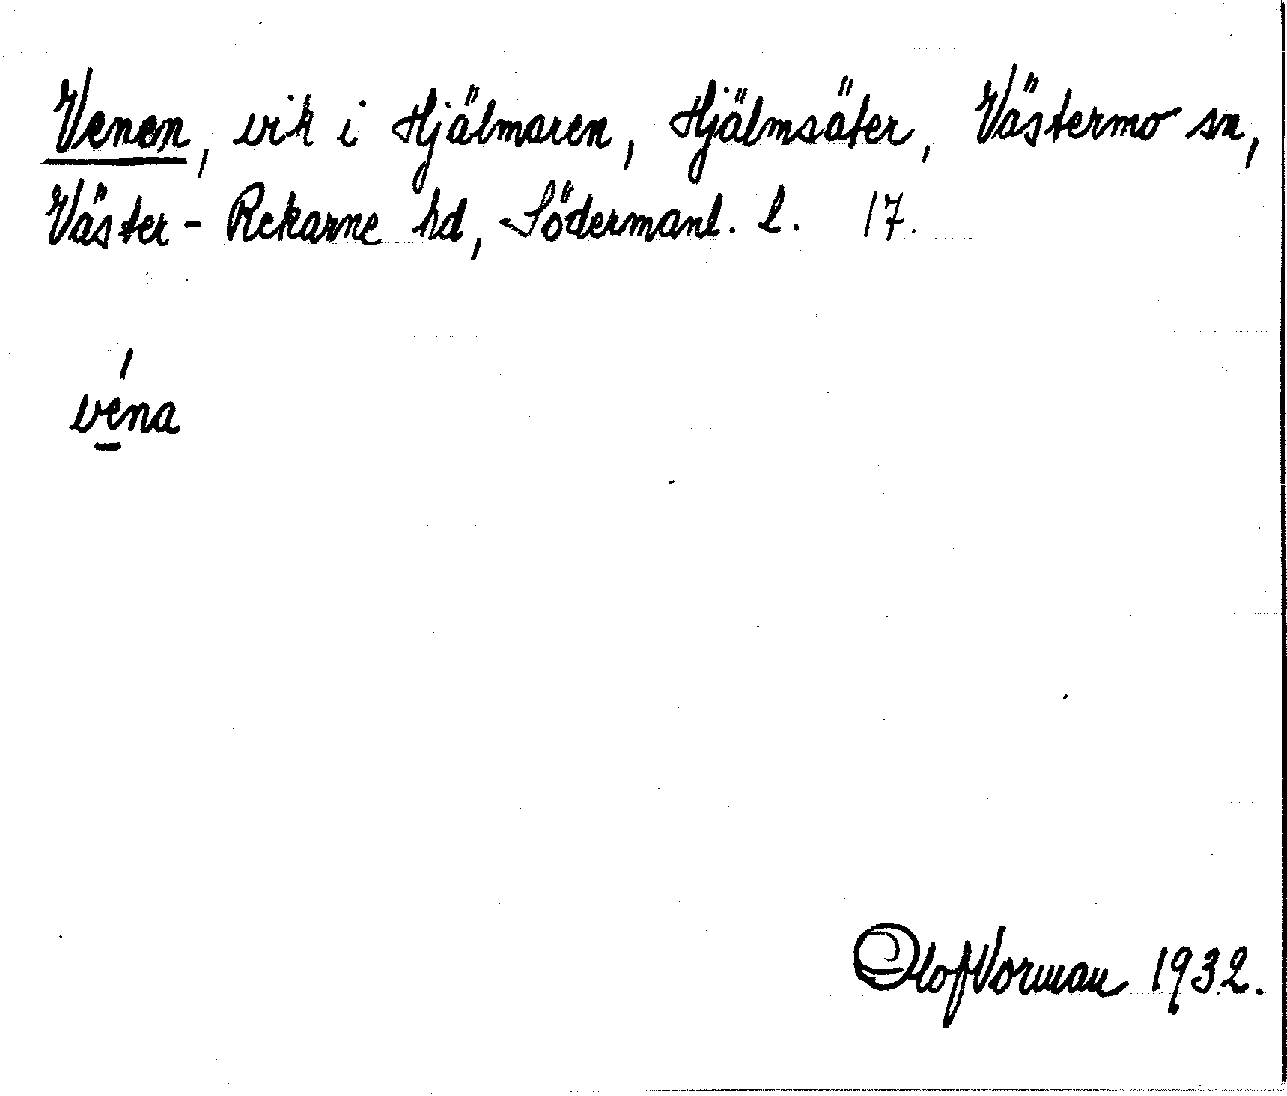 Venen, vik i Hjälmaren, Hjälmsäter, Västermo sn,
Väster-Rekarne hd, Södermanl. l. 17.
véna
Olof Vorman 1932.